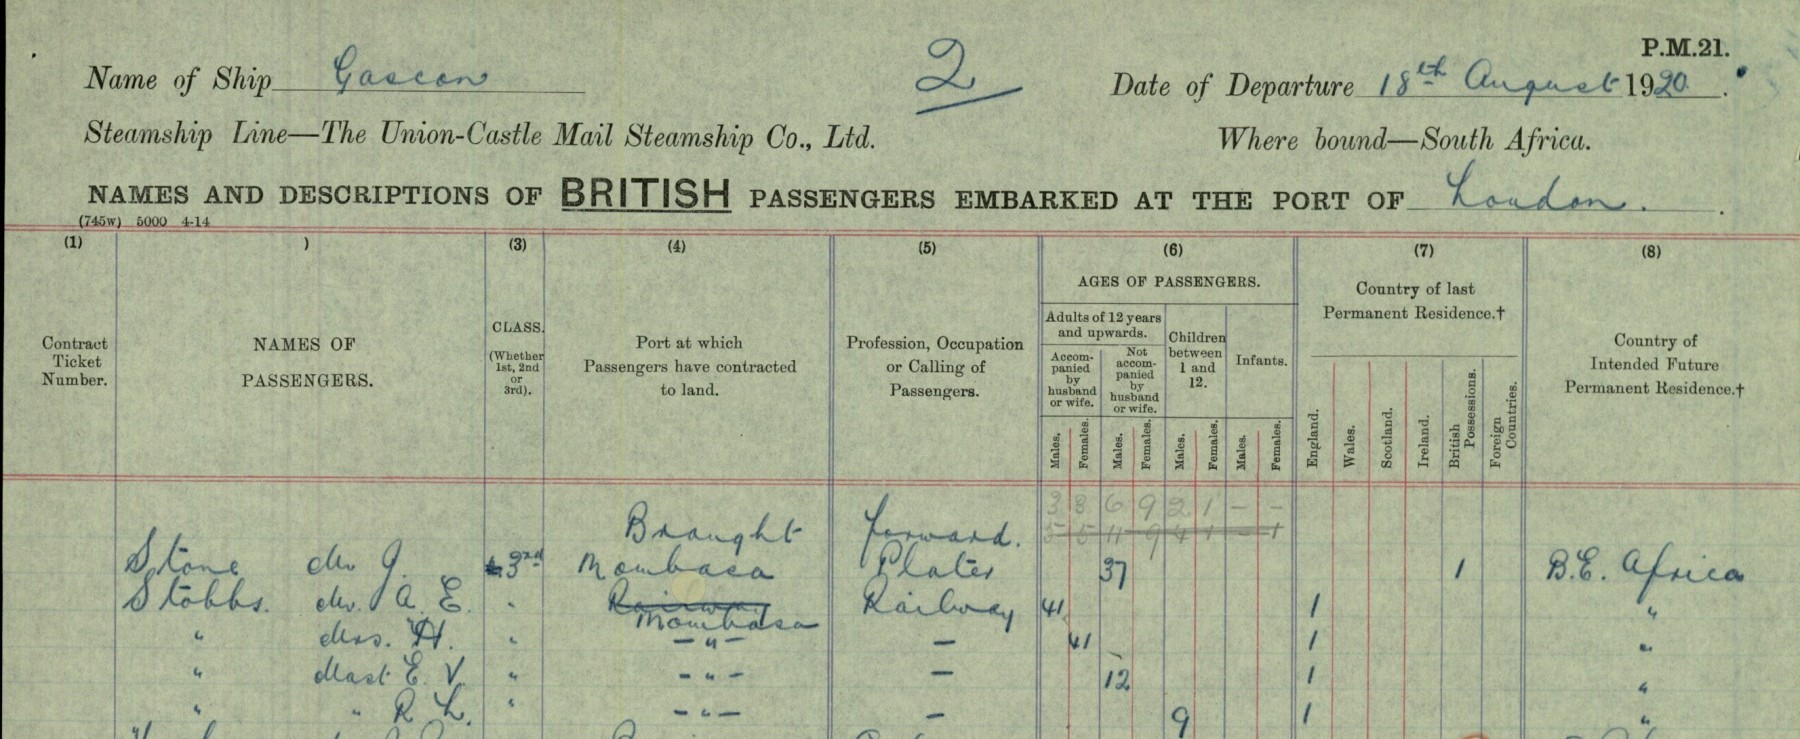 P.M.21.
Name of Ship Gascon 2 Date of Departure 18th August 1920.
Steamship Line—The Union-Castle Mail Steamship Co., Ltd. Where bound—South Africa.
NAMES AND DESCRIPTIONS OF BRITISH PASSENGERS EMBARKED AT THE PORT OF London.
(745w) 5000 4-14
(1) ) (3) (4) (5) (6) (7) (8)
Contract Ticket Number.
NAMES OF PASSENGERS.
CLASS. (Whether 1st, 2nd or 3rd).
Port at which Passengers have contracted to land.
Profession, Occupation or Calling of Passengers.
AGES OF PASSENGERS.
Adults of 12 years and upwards.
Accompanied by husband or wife.
Not accompanied by husband or wife.
Children between 1 and 12.
Infants.
Males. Females. Males. Females. Males. Females. Males. Females.
Country of last Permanent Residence.†
England. Wales. Scotland. Ireland. British Possessions. Foreign Countries.
Country of Intended Future Permanent Residence.†
3 8 6 9 2 1 - -
Brought forward. 5 5 11 9 4 1 - 1
Stone Mr J. 3rd Mombasa Plater 37 1 B.E. Africa
Stobbs. Mr. A. E. " Railway Mombasa Railway 41 1 "
" Mrs. H. " - " - - 41 1 "
" Mast E. V. " - " - - 12 1 "
" " R L. " - " - - 9 1 "